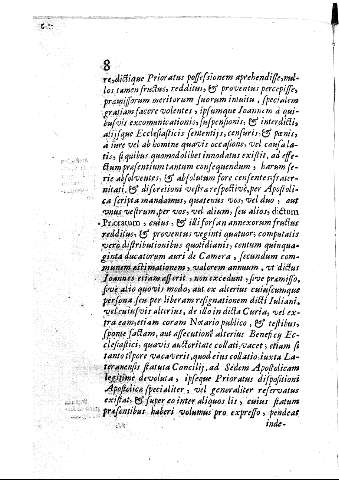 8
re, dictique Prioratus possessionem aprehendisse, nul-
los tamen fructus, redditus, & proventus percepisse,
præmissorum meritorum suorum intuitu, specialem
gratiam facere volentes, ipsumque Ioannem à qui-
busvis excomunicationis, suspensionis, & interdicti,
alijsque Ecclesiasticis sententijs, censuris: & pœnis,
à iure vel ab homine quavis occasione, vel causa la-
tis, si quibus quomodolibet innodatus existit, ad effe-
ctum præsentium tantum consequendum, harum se-
rie absolventes, & absolutum fore censentes frater-
nitati, & discretioni vestræ respectivè, per Apostoli-
ca scripta mandamus, quatenus vos, vel duo, aut
unus vestrum, per vos, vel alium, seu alios, dictum
Prioratum, cuius, & illi forsan annexorum fructus
redditus, & proventus veginti quatuor, computatis
verò distributionibus quotidianis, centum quinqua-
ginta ducatorum auri de Camera, secundum com-
munem estimationem, valorem annuum, ut dictus
Ioannes etiam asserit, non excedunt, sive præmisso,
sivè alio quovis modo, aut ex alterius cuiuscunque
persona seu per liberam resignationem dicti Iuliani,
vel cuiusvis alterius, de illo in dicta Curia, vel ex-
tra eam, etiam coram Notario publico, & testibus,
sponte factam, aut assecutionẽ alterius Beneficij Ec-
clesiastici, quavis auctoritate collati, vacet, etiam si
tanto tẽpore vacaverit, quod eius collatio iuxta La-
teranensis statuta Concilij, ad Sedem Apostolicam
legitimè devoluta, ipseque Prioratus dispositioni
Apostolicæ specialiter, vel generaliter reservatus
existat, & super eo inter aliquos lis, cuius statum
præsentibus haberi volumus pro expresso, pendeat
inde-